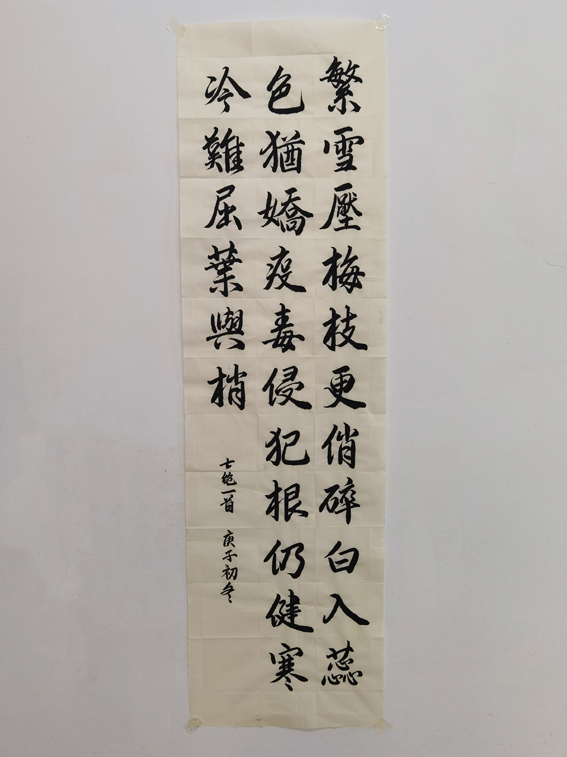 繁雪壓梅枝更俏碎白入蕊
色猶嬌疫毒侵犯根仍健寒
冷難屈葉與梢
士绝一首 庚子初冬